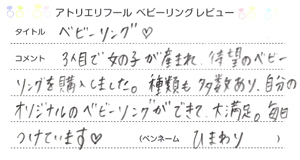 アトリエリフール ベビーリングレビュー
タイトル ベビーリング♡
コメント 3人目で女の子が産まれ、待望のベビー
リングを購入しました。種類も多数あり、自分の
オリジナルのベビーリングができて、大満足。毎日
つけています♡ (ペンネーム ひまわり )